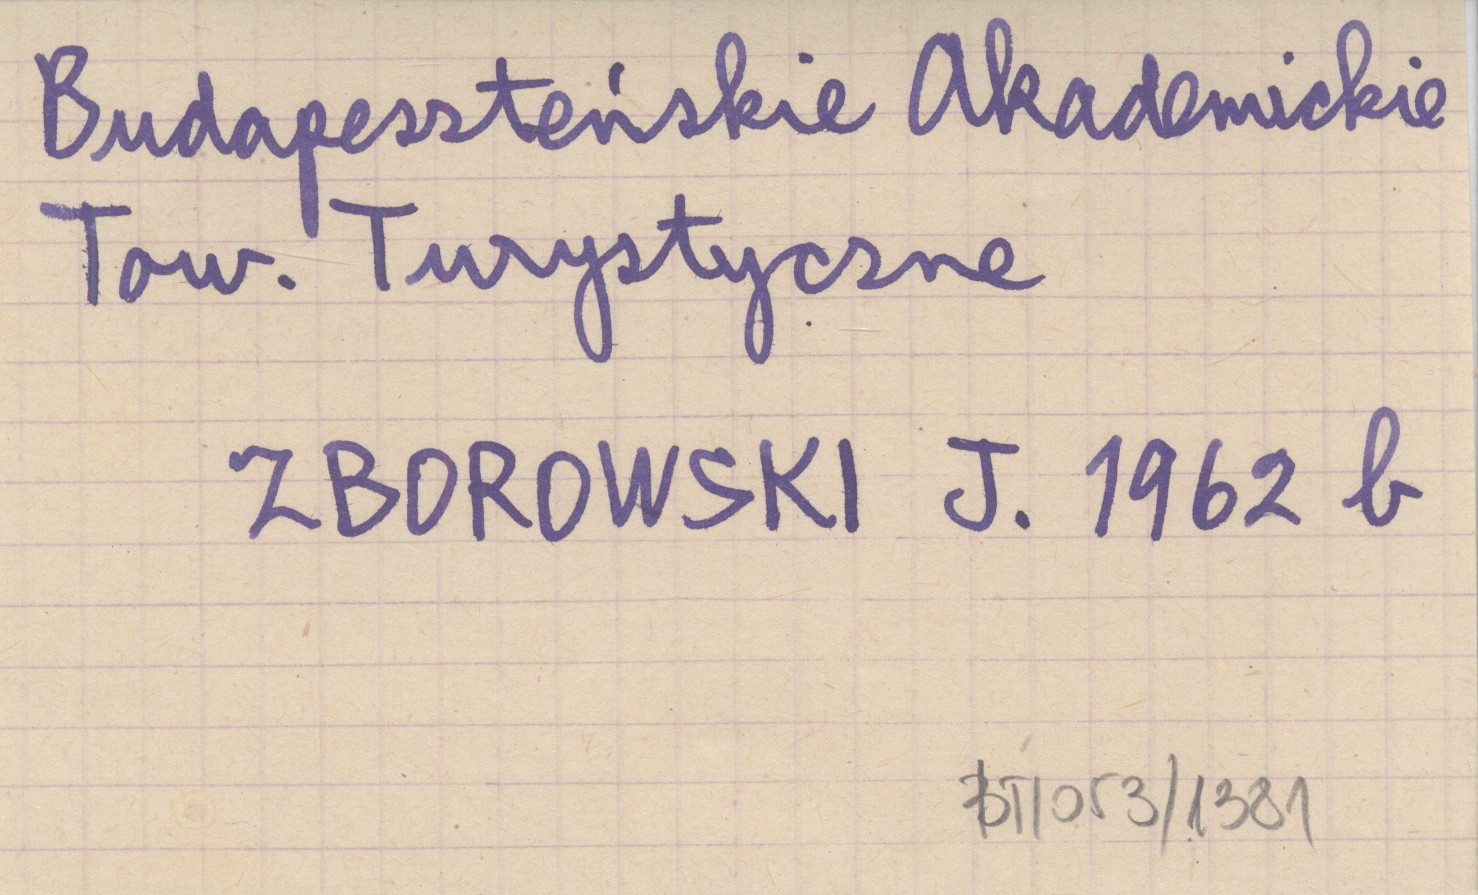 Budapeszteńskie Akademickie
Tow. Turystyczne
ZBOROWSKI J. 1962 b
BT/053/1381